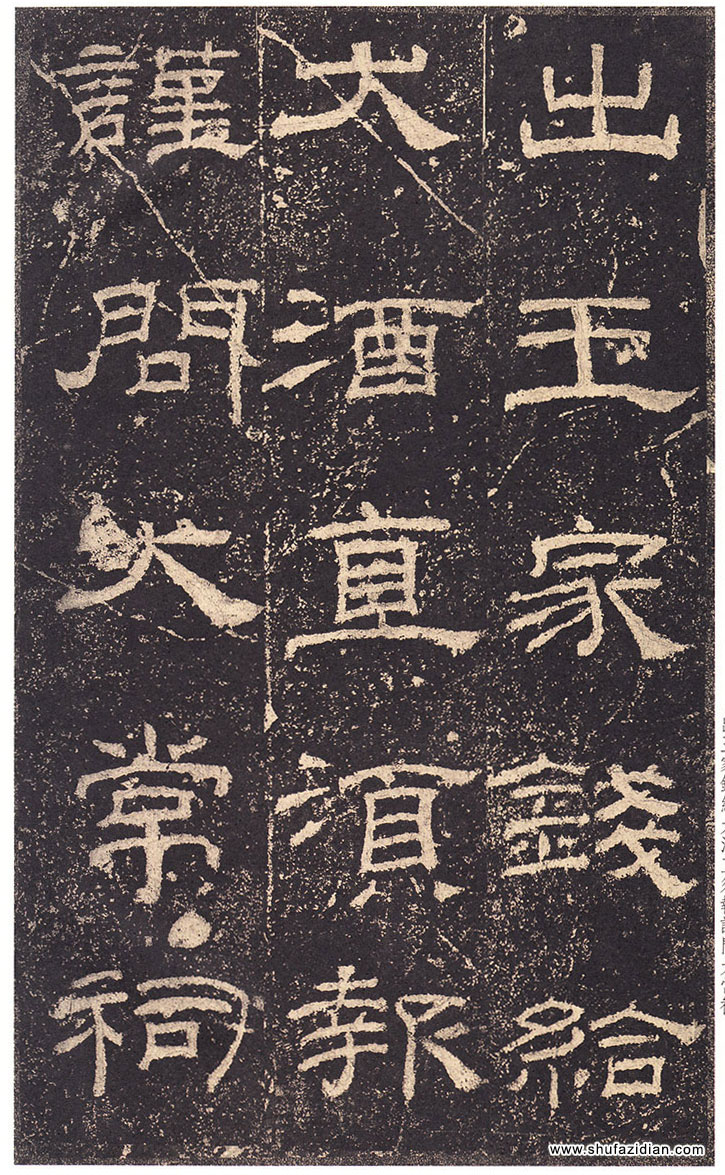 出王家錢給
大酒直湏報
謹問大常祠
www.shufazidian.com